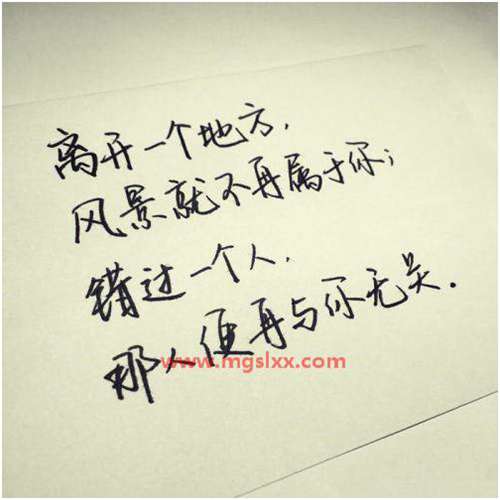 离开一个地方,
风景就不再属于你;
错过一个人,
那人便再与你无关.
www.mgslxx.com